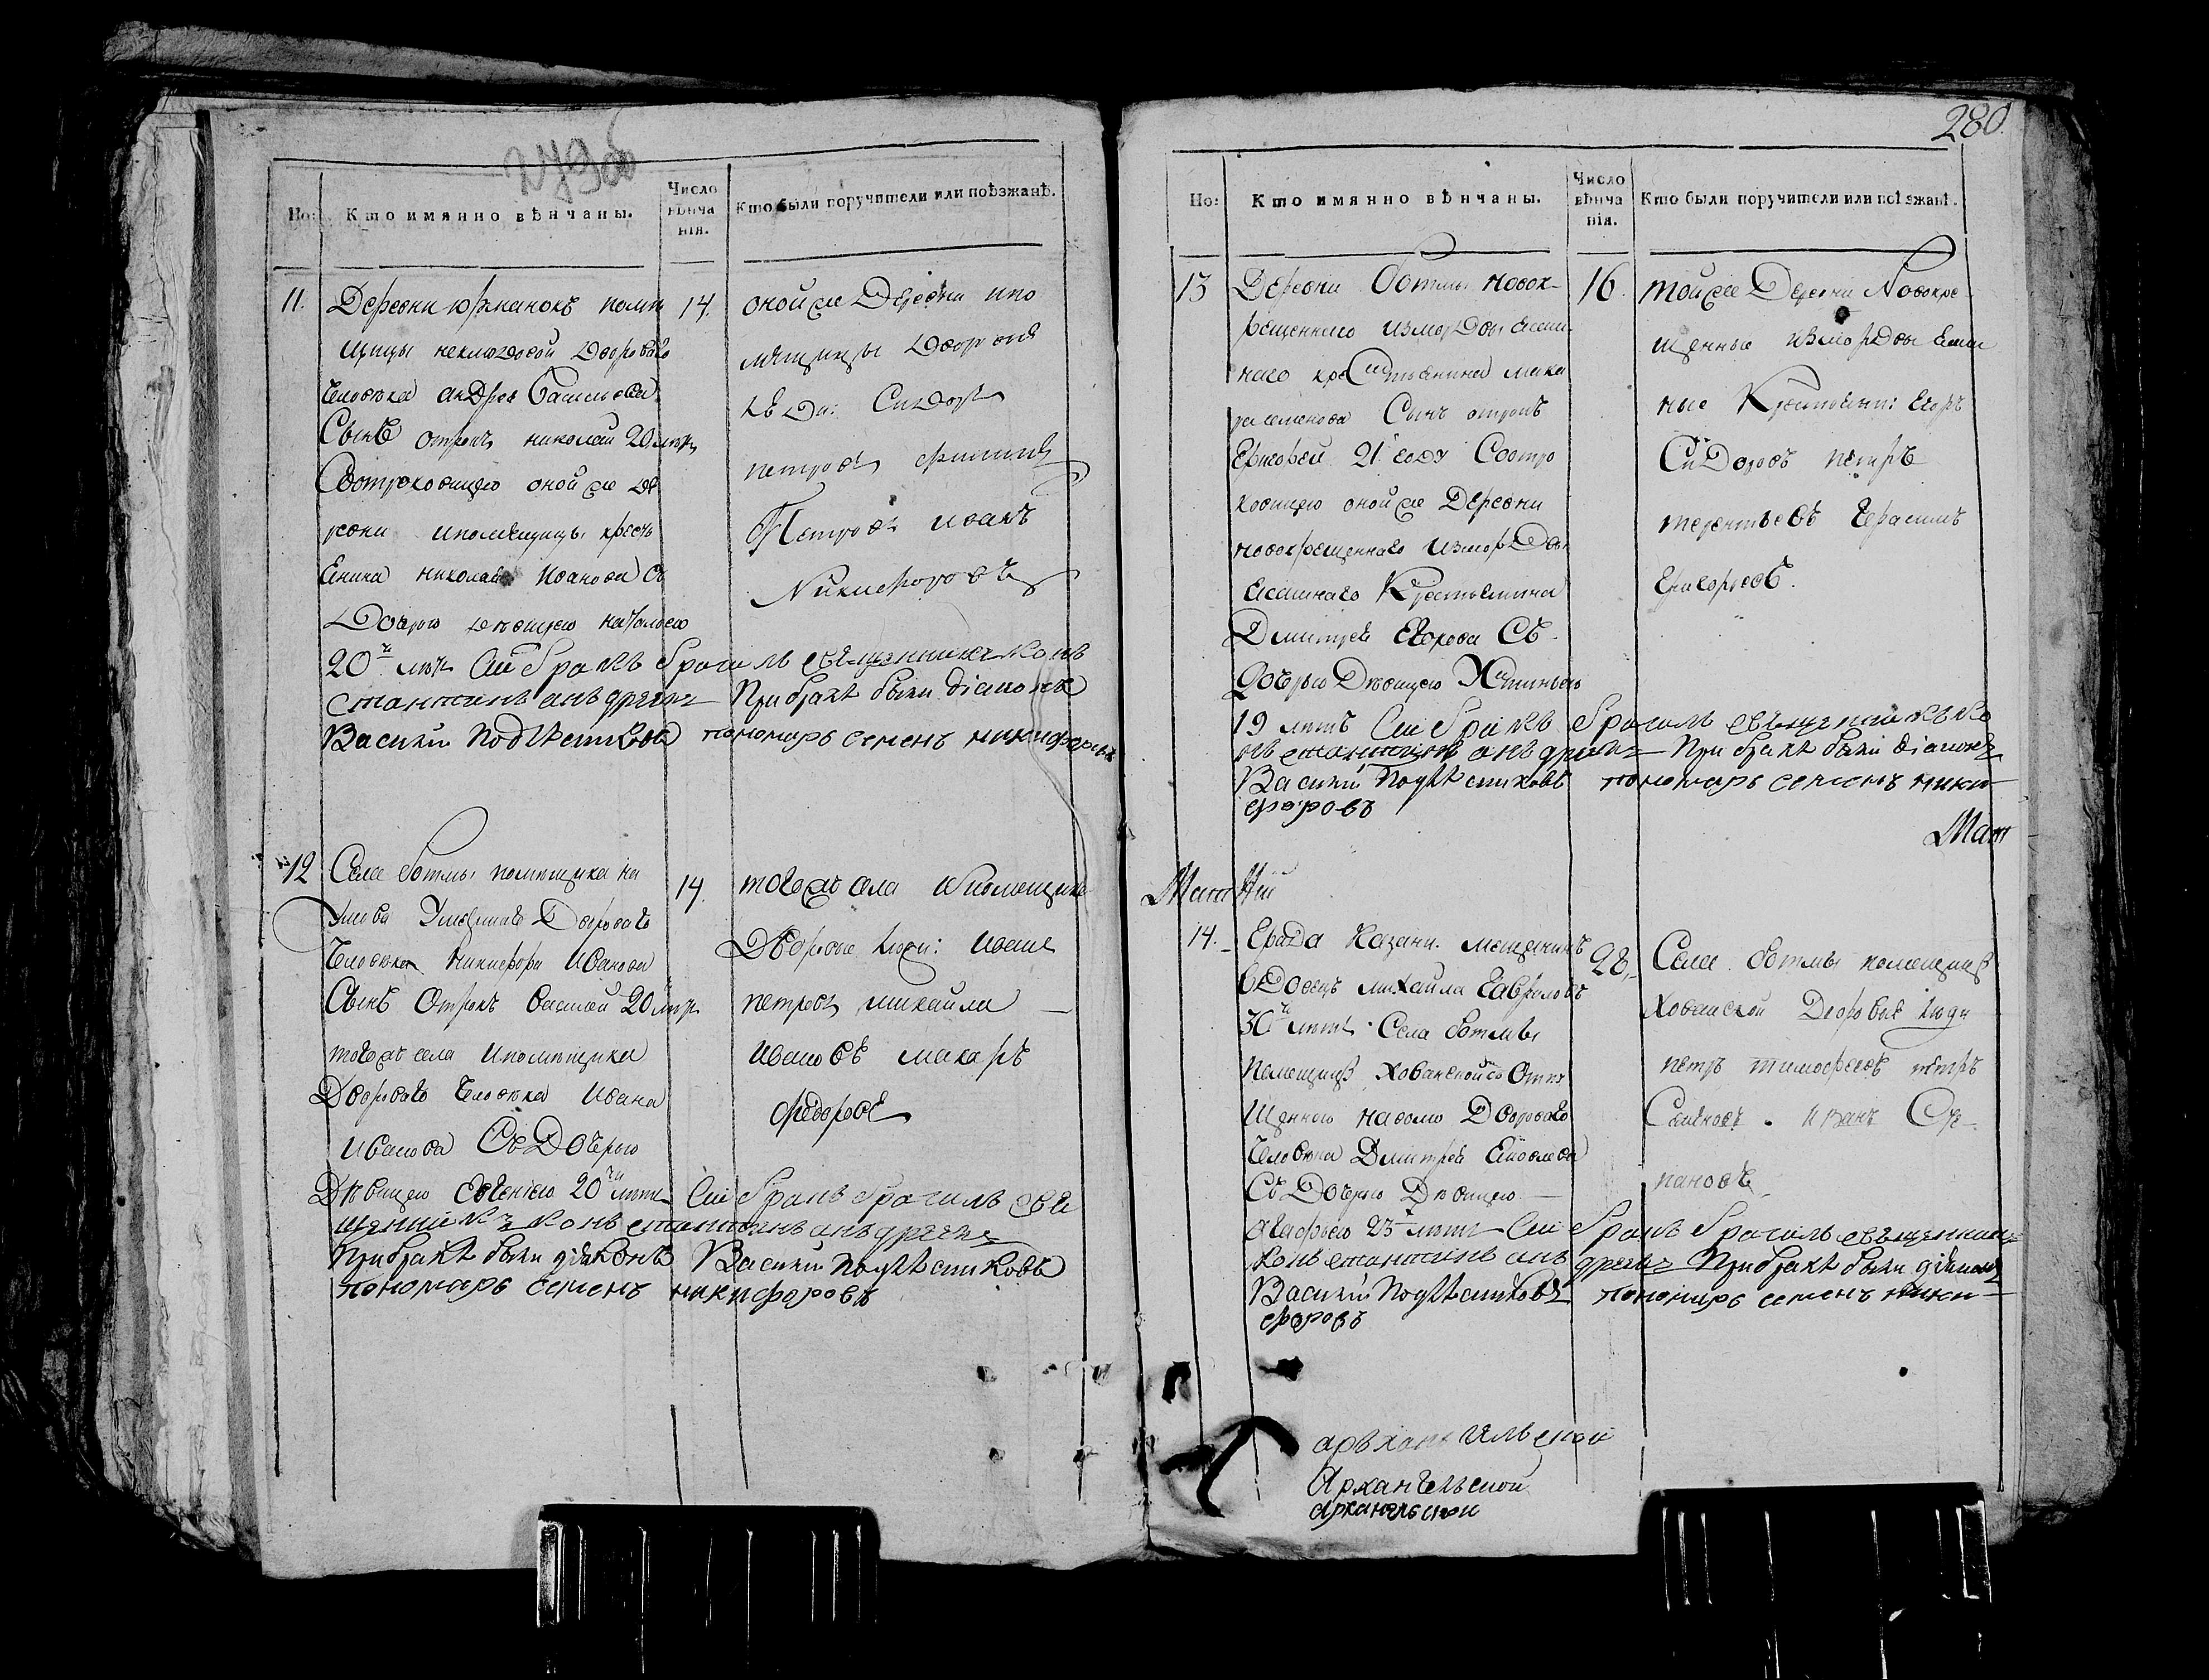 280
Но:
Кто имянно вѣнчаны.
Число вѣнча нія.
Кто были поручители или поѣзжанѣ.
11.
Деревни юрманокъ помѣ
щицы неклюдовой дворового
человѣка андрея Васильева
Сынъ отрокъ николай 20 лѣтъ
Сотроковицею оной же де
ревни ипомѣщицы кресть
енина николая Иванова съ
Дочерью девицею натальею
20ти лѣтъ Сий бракъ брачилъ священникъ конъ
стантинъ анъдреевъ При бракѣ были діаконъ
Василий Подлѣсниковъ пономарь семенъ никифоровъ
14.
оной же Деревни ипо
мѣщицы дворовые
люди: Сидоръ
петровъ филиппъ
Петровъ иванъ
Никифоровъ
12
Села ботмы помѣщика
Дворового
человѣка Никифора Иванова
Сынъ Отрокъ василей 20 лѣтъ
тогожъ села ипомѣщика
Дворового человѣка Ивана
иванова Съ Дочерью
Дѣвицею евгениею 20ти лѣтъ Сий бракъ брачилъ свя
щенникъ конъстантинъ анъдреевъ
При бракѣ были діяконъ Василий Подлѣсниковъ
пономарь семенъ никифоровъ
14.
тогожъ села ипомещика
Дворовые люди: иванъ
петровъ михайла
ивановъ макаръ
федоровъ
Но:
Кто имянно вѣнчаны.
Число вѣнча нія.
Кто были поручители или поѣзжанѣ.
13
Деревни ботмы новок-
рещеннаго измордвы ясаш
наго крестьянина мака
ра семенова Сынъ отрокъ
Григорей 21 году Соотро
ковицею оной же Деревни
новокрещеннаго измордвы
ясашнаго Крестьянина
Дмитрея Егорова Съ
Дочерью Дѣвицею Устиньею
19 лѣтъ Сий бракъ брачилъ священникъ ко
нъстантинъ анъдреевъ При бракѣ были діаконъ
Василий Подлѣсниковъ пономарь семенъ ники
форовъ
16.
той же Деревни Новокре
щенные измордвы ясаш
ные Крестьяни: Егоръ
Сидоровъ петръ
терентьевъ Герасимъ
Григорьевъ.
Маш
Маш Нiи
14.
Града Казани мещанинъ
вдовецъ михайла Гавриловъ
30ти лѣтъ Села ботмы
Помещицы Хованской со Отпу
щенного наволю Дворового
человѣка Дмитрея Яковлева
Съ Дочерью Дѣвицею
агафьею 23 лѣтъ Сий бракъ брачилъ священникъ
конъстантинъ анъдреевъ При бракѣ были діяконъ
Василий Подлѣсниковъ пономарь семенъ ники
форовъ
28.
Села ботмы помещицы
Хованской Дворовые люди
петръ тимофеевъ петръ
Семеновъ. Иванъ Сте
пановъ
аръхангильской
Архангельской
архангельской